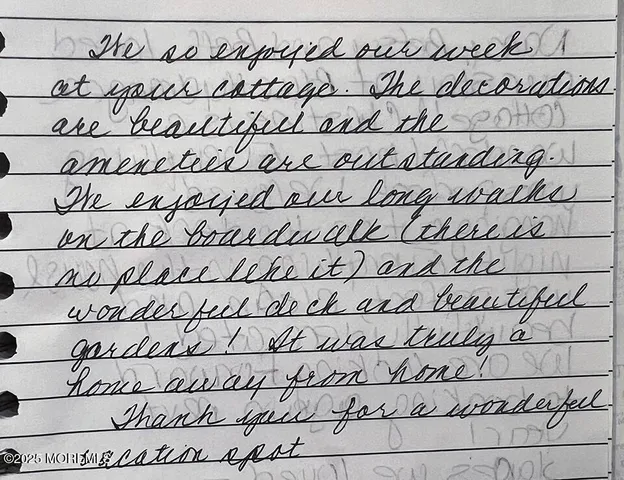 We so enjoyed our week
at your cottage. The decorations
are beautiful and the
ameneties are outstanding.
We enjoyed our long walks
on the boardwalk (there is
no place like it) and the
wonderful deck and beautiful
gardens! It was truly a
home away from home!
Thank you for a wonderful
vacation spot
©2025 MOREMLS